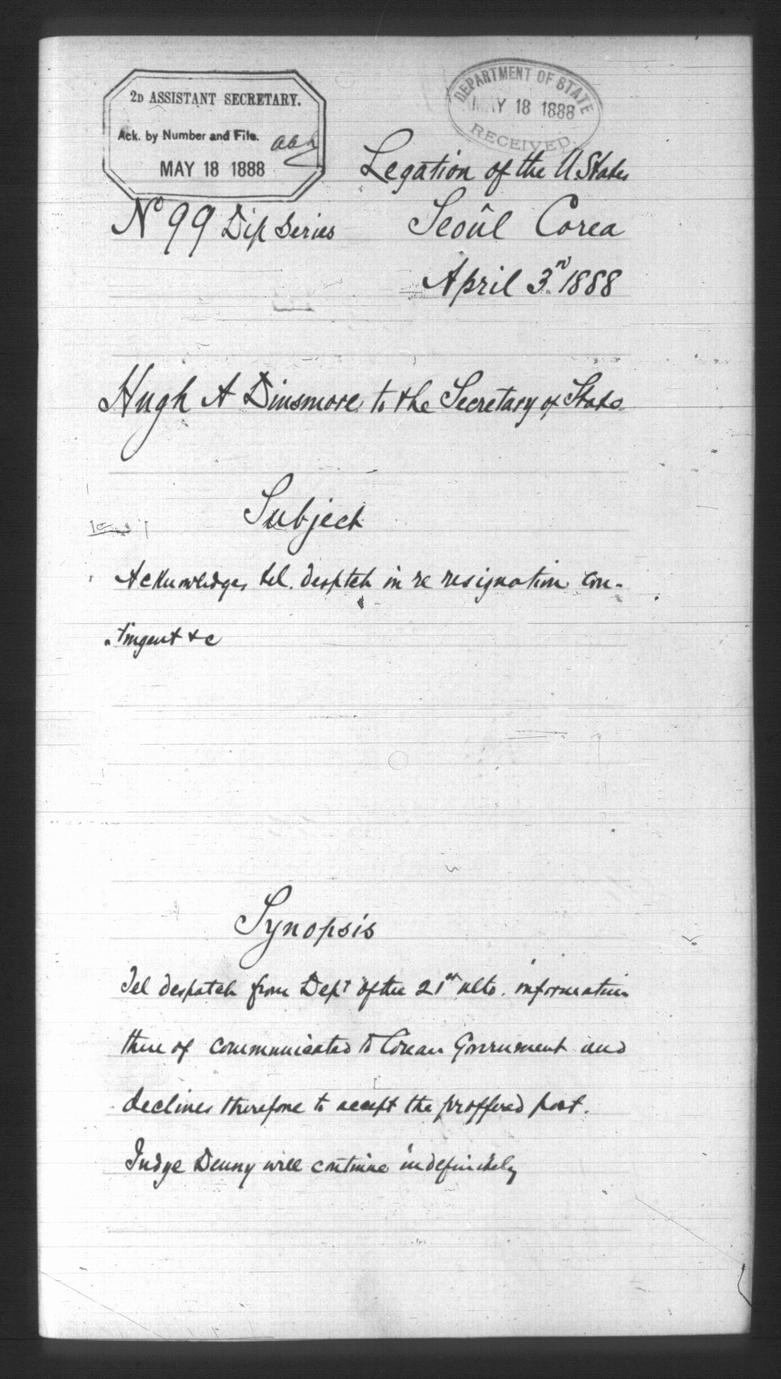 2D ASSISTANT SECRETARY.
Ack. by Number and File.
MAY 18 1888
DEPARTMENT OF STATE
MAY 18 1888
RECEIVED
Legation of the U States
No 99 Dip Series Seoûl Corea
April 3rd 1888
Hugh A Dinsmore to the Secretary of State
Subject
Acknowledges tel. desptch in re resignation con-
tingent &c
Synopsis
Tel despatch from Dept of the 21st ulto. information
there of communicated to Corean Government and
declines therefore to accept the proffered post.
Judge Denny will continue indefinitely